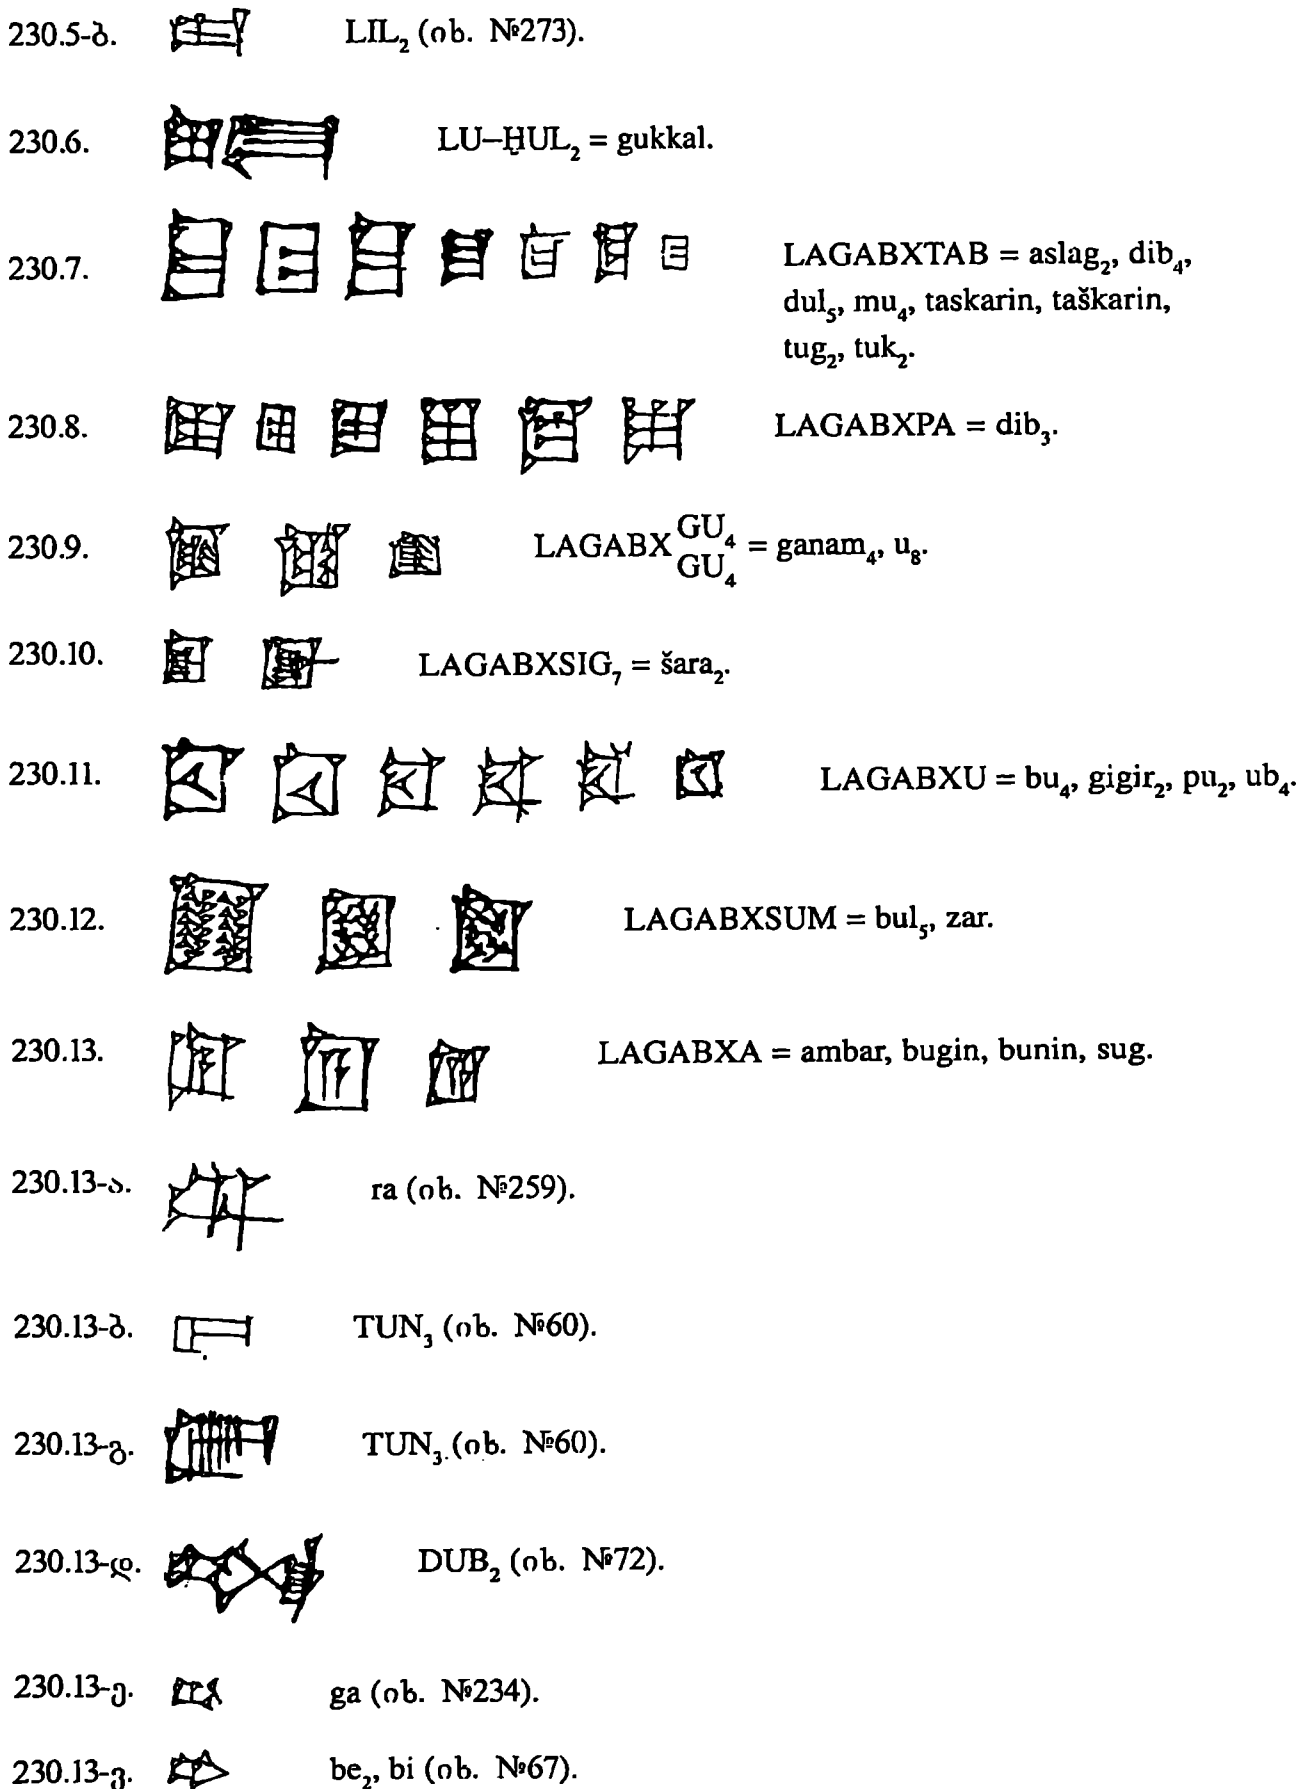 230.5-ბ. LIL₂ (იხ. №273).
230.6. LU–ḪUL₂ = gukkal.
230.7. LAGABXTAB = aslag₂, dib₄,
dul₅, mu₄, taskarin, taškarin,
tug₂, tuk₂.
230.8. LAGABXPA = dib₃.
230.9. LAGABX GU₄ GU₄ = ganam₄, u₈.
230.10. LAGABXSIG₇ = šara₂.
230.11. LAGABXU = bu₄, gigir₂, pu₂, ub₄.
230.12. LAGABXSUM = bul₅, zar.
230.13. LAGABXA = ambar, bugin, bunin, sug.
230.13-ა. ra (იხ. №259).
230.13-ბ. TUN₃ (იხ. №60).
230.13-გ. TUN₃ (იხ. №60).
230.13-დ. DUB₂ (იხ. №72).
230.13-ე. ga (იხ. №234).
230.13-ვ. be₂, bi (იხ. №67).